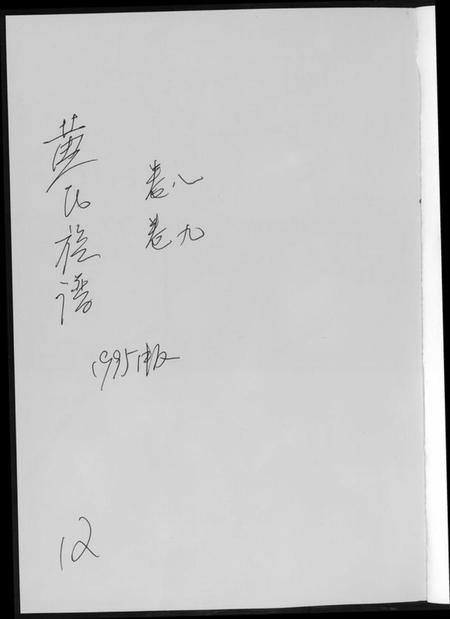 黄氏族谱
卷八
卷九
1995版
12